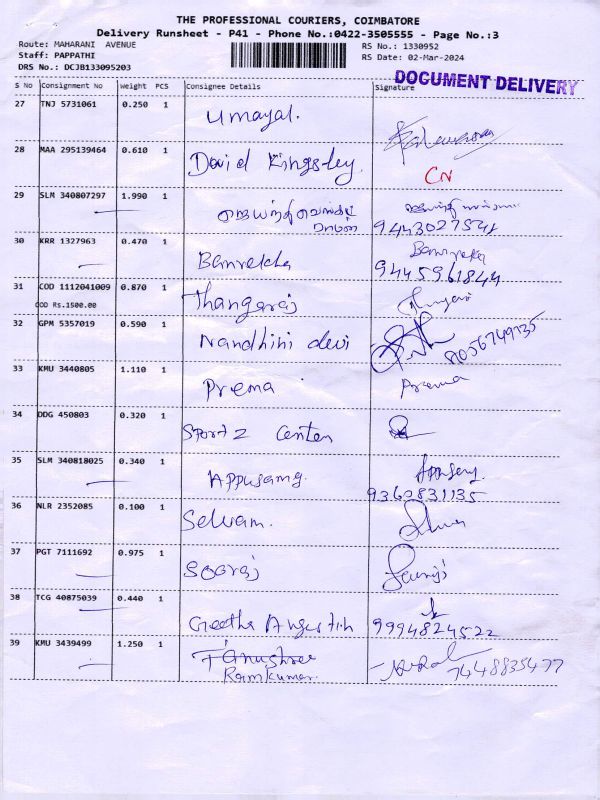 THE PROFESSIONAL COURIERS, COIMBATORE
Delivery Runsheet - P41 - Phone No.:0422-3505555 - Page No.:3
Route: MAHARANI AVENUE RS No.: 1330952
Staff: PAPPATHI RS Date: 02-Mar-2024
DRS No.: DCJB133095203
DOCUMENT DELIVERY
S No Consignment No Weight PCS Consignee Details Signature
27 TNJ 5731061 0.250 1 Umayal.
28 MAA 295139464 0.610 1 David Kingsley. CN
29 SLM 340807297 1.990 1
9443027541
30 KRR 1327963 0.470 1 Banurekha Banureka
9445961844
31 COD 1112041009 0.870 1 Thangaraj
COD Rs.1500.00
32 GPM 5357019 0.590 1 Nandhini devi 8056749735
33 KMU 3440805 1.110 1 Prema Prema
34 DDG 450803 0.320 1 Sportz Center
35 SLM 340818025 0.340 1 Appusamy.
9362831135
36 NLR 2352085 0.100 1 Selvam.
37 PGT 7111692 0.975 1 Sooraj
38 TCG 40875039 0.440 1 Geetha Angustin 9994824522
39 KMU 3439499 1.250 1 Tanushree 7448835477
Ramkumar.